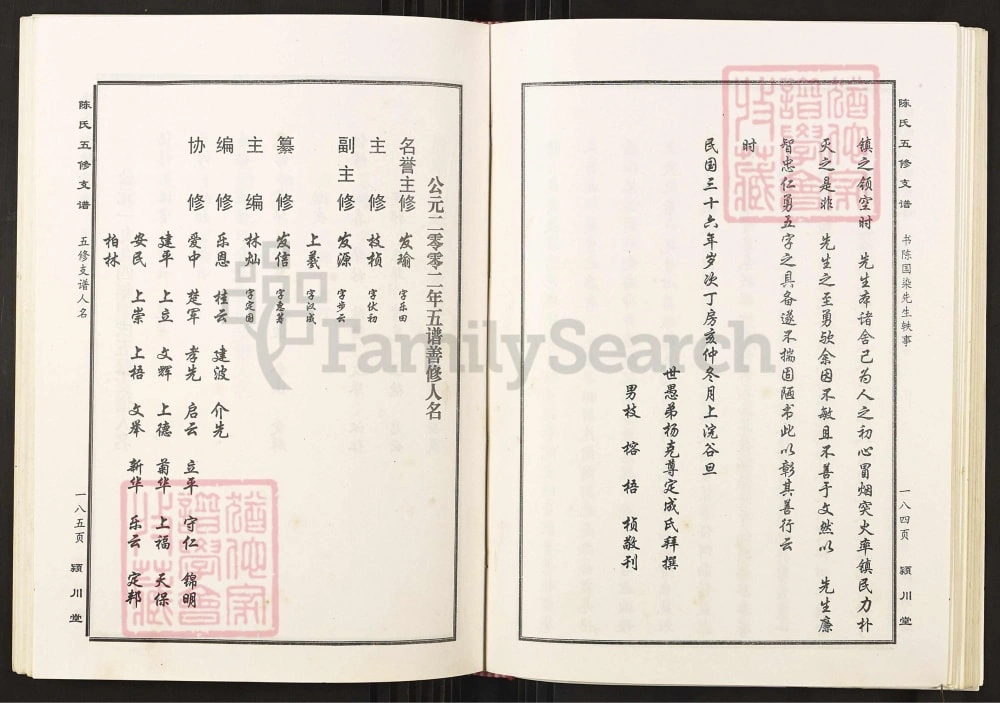 陈氏五修支谱
书陈国染先生轶事
一八四页
颍川堂
镇之领空时 先生本诸舍己为人之初心冒烟突火率镇民力扑
灭之是非 先生之至勇欤余因不敏且不善于文然以 先生廉
智忠仁勇五字之具备遂不揣固陋书此以彰其善行云
时
民国三十六年岁次丁房亥仲冬月上浣谷旦
世愚弟杨克尊定成氏拜撰
男枝 榕 梧 桢敬刊
公元二零零二年五谱善修人名
名誉主修 发瑜 字乐田
主修 枝桢 字伏初
副主修 发源 字步云
上羲 字汉成
纂修 发信
主编 林灿 字定国
编修 乐恩 桂云 建波 介先
协修 爱中 楚军 孝先 启云 立平 守仁 锦明
建平 上立 文辉 上德 菊华 上福 天保
安民 上崇 上梧 文举 新华 乐云 定邦
柏林
陈氏五修支谱
五修支谱人名
一八五页
颍川堂
FamilySearch